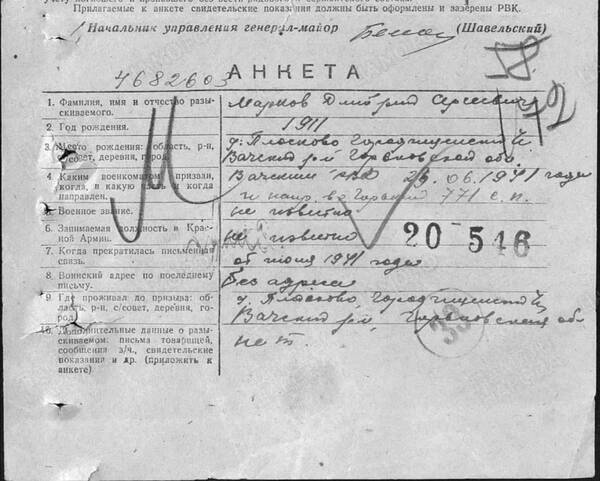 учету погибшего и пропавшего без вести рядового и сержантского состава.
Прилагаемые к анкете свидетельские показания должны быть оформлены и заверены РВК.
Начальник управления генерал-майор (Шавельский)
4682603
АНКЕТА
1. Фамилия, имя и отчество разы-
скиваемого.
Марков Дмитрий
2. Год рождения.
1911
3. Место рождения: область, р-н,
с/совет, деревня, город.
д. Плосково, Городищенский
Вачский р-н Горьковской об.
4. Каким военкоматом призван,
когда, в какую часть и когда
направлен.
Вачским РВК 23.06.1941 года
и напр. в г. Горький 771 с. п.
5. Военное звание.
не известно
6. Занимаемая должность в Крас-
ной Армии.
не известно
20 546
7. Когда прекратилась письменная
связь.
от июня 1941 года
8. Воинский адрес по последнему
письму.
без адреса
9. Где проживал до призыва: об-
ласть, р-н, с/совет, деревня, го-
род.
д. Плосково, Городищенский
Вачский р-н, Горьковская об.
10. Дополнительные данные о разы-
скиваемом: письма товарищей,
сообщения з/ч., свидетельские
показания и др. (приложить к
анкете)
нет.
33
72